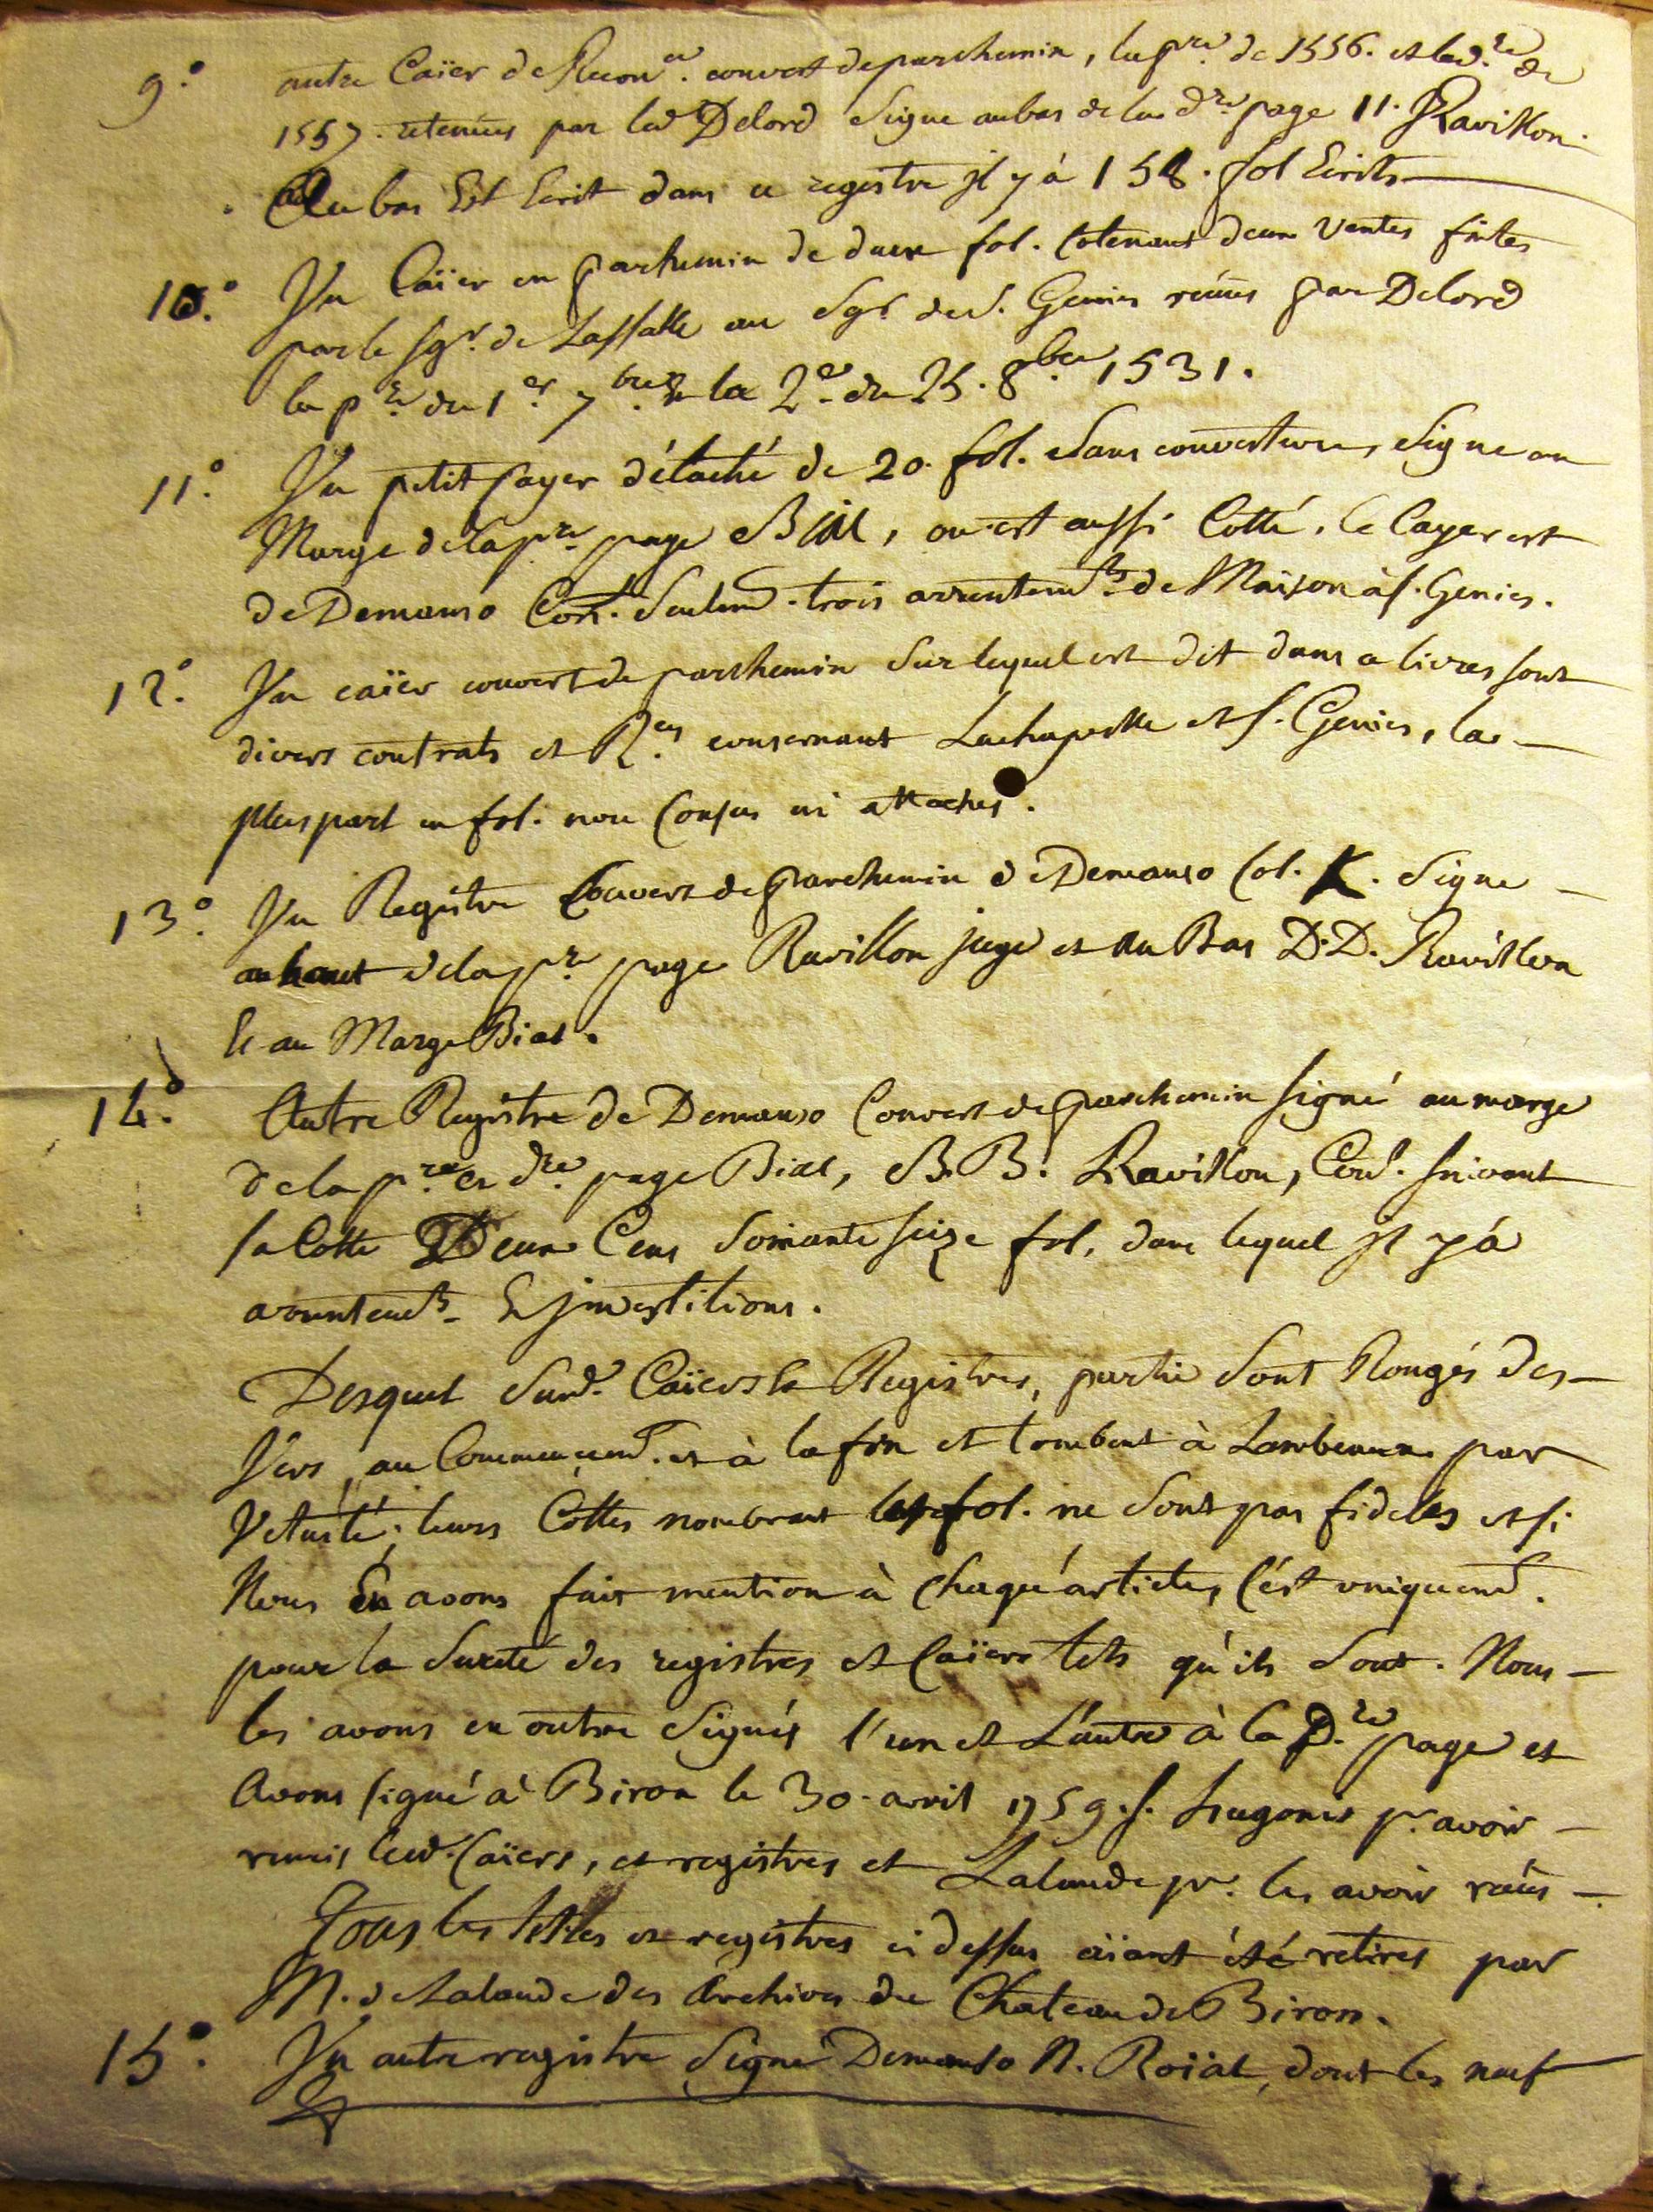 9.° autre Caïer de Recon.ce couvert de parchemin, la p.re de 1556. et la d.re de
1557. retenues par led Delord Signe au bas de la d.re page 11. Ravillon.
Au bas Est Ecrit dans ce registre jl y à 158. fol Ecrits
10.° Un Caïer en parchemin de deux fol. Cotenant deux Ventes faites
par le sgr. de Lassalle au Sgr. de S. Geniès reçues par Delord
la p.re du 1.er 7.bre & la 2.e du 25. 8.bre 1531.
11.° Un petit Cayer détaché de 20. fol. Sans couverture, Signe au
Marge de la p.re page Bial, ou est aussi Cotté, le Cayer est
de Demanso Con.t Seulem.t trois arrentem.ts de Maison à s. Genies.
12.° Un caïer couvert de parchemin Sur lequel est dit dans ce livre sont
divers contrats et R.ces consernant Lachapelle et s. Genies, la
plus part en fol. non Cousus ni attachés.
13.° Un Registre Couvert de parchemin de Demanso Cot. K. Signe
au haut de la p.re page Ravillon juge et au Bas D.D. Ravillon
Et au Marge Bial.
14.° Autre Registre de Demanso Couvert de parchemin signé au marge
de la p.re et d.re page Bial, B.B. Ravillon, Con.t suivant
sa Cotte Deux Cens Soixante seize fol. dans lequel jl y à
arrentem.ts & jnvestitions.
Desquel Sud. Caïers & Registres, partie Sont Rongés des
Vers, au Commencem.t et à la fin et tombent à Lambeaux par
Vetusté; leurs Cottes nombrant les fol. ne Sont pas fideles et si
Nous En avons fait mention à Chaqu'article, C'ést uniquem.t
pour la Sureté des registres et Caïers tels qu'ils Sont. Nous
les avons en outre Signés l'un et L'autre à la D.re page et
Avons signé à Biron le 30. avril 1759. s. Hugonis p.r avoir
remis lesd. Caïers, et registres et Lalande pr. les avoir reçus.
Tous les titres et registres ci dessus aïant été retirés par
M. de Lalande des Archives du Chateau de Biron.
15.° Un autre registre Signé Demanso N. Roïal, dont les neuf